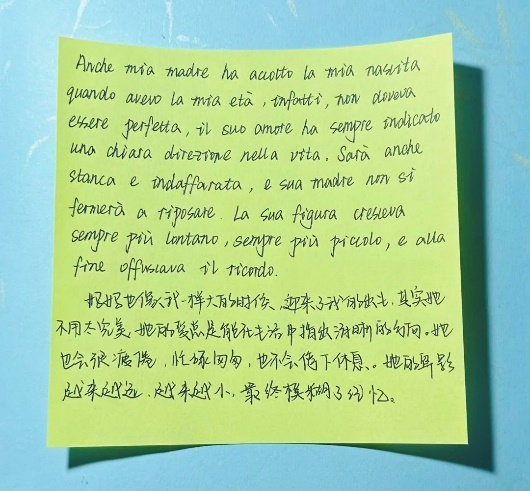 Anche mia madre ha accolto la mia nascita
quando avevo la mia età, infatti, non doveva
essere perfetta, il suo amore ha sempre indicato
una chiara direzione nella vita. Sarà anche
stanca e indaffarata, e sua madre non si
fermerà a riposare. La sua figura cresceva
sempre più lontano, sempre più piccolo, e alla
fine offuscava il ricordo.
妈妈也像我一样大的时候，迎来了我的出生，其实她
不用太完美，她的爱总是能在生活中指出清晰的方向。她
也会很疲倦，忙碌匆匆，也不会停下休息。她的身影
越来越远，越来越小，最终模糊了记忆。